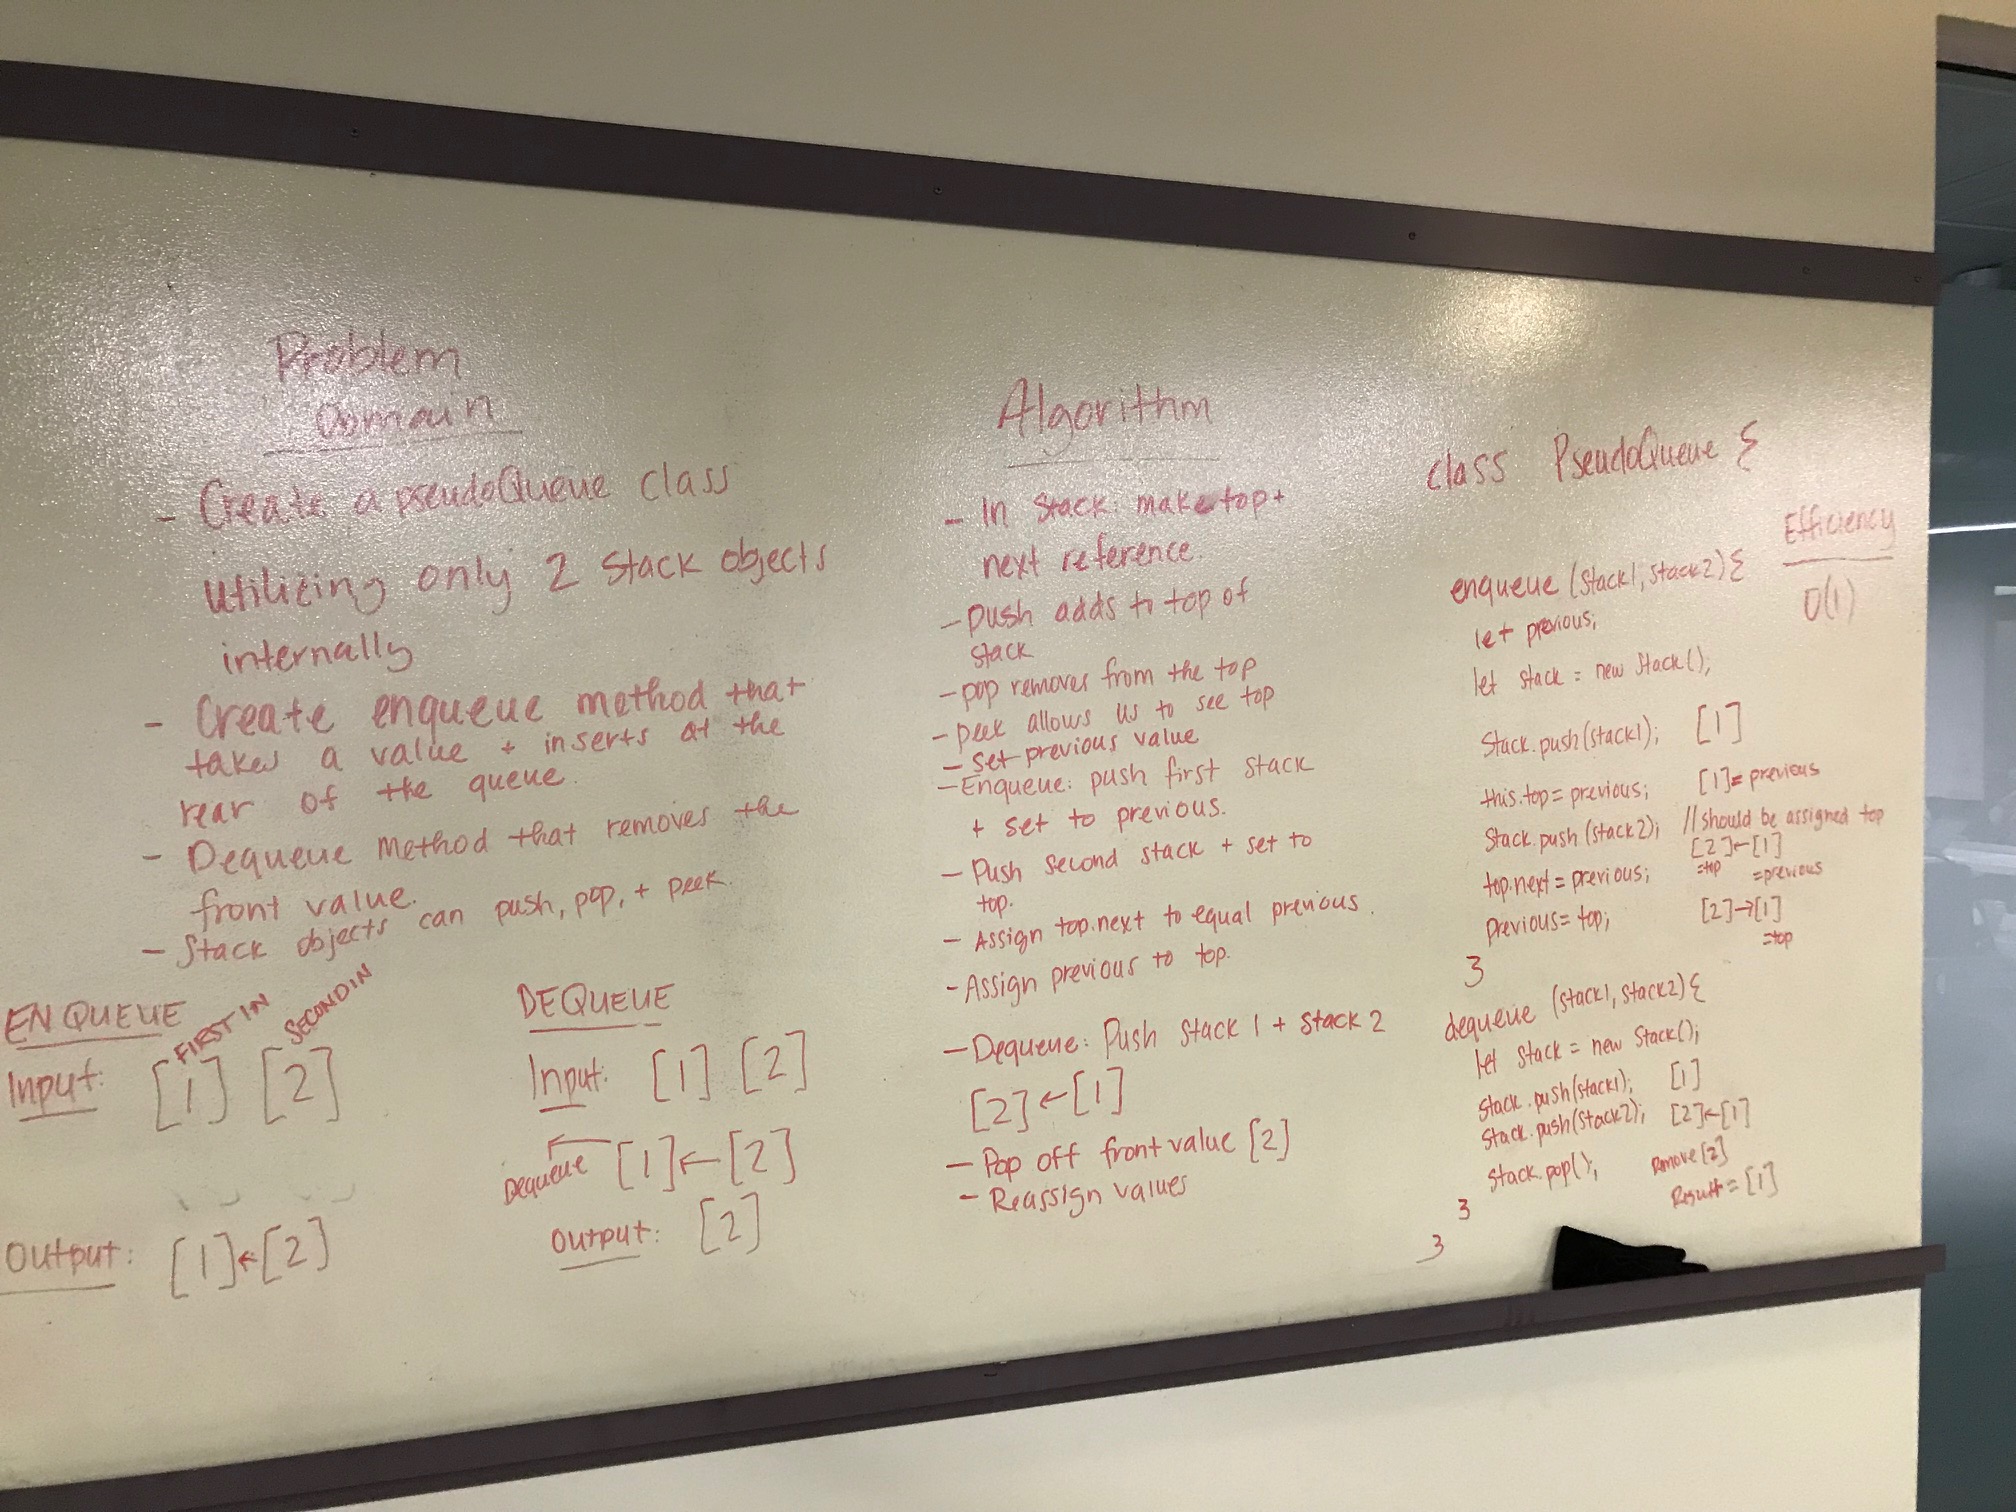 Problem
Domain
- Create a pseudoQueue class
utilizing only 2 Stack objects
internally
- Create enqueue method that
takes a value + inserts at the
rear of the queue.
- Dequeue method that removes the
front value.
- Stack objects can push, pop, + peek.
ENQUEUE
FIRST IN
SECOND IN
Input: [1] [2]
Output: [1]←[2]
DEQUEUE
Input: [1] [2]
Dequeue ← [1]←[2]
Output: [2]
Algorithm
- In Stack: make top +
next reference.
- Push adds to top of
stack
- pop removes from the top
- peek allows us to see top
- set previous value
- Enqueue: push first stack
+ set to previous.
- Push second stack + set to
top.
- Assign top.next to equal previous.
- Assign previous to top.
- Dequeue: Push stack 1 + stack 2
[2]←[1]
- Pop off front value [2]
- Reassign values
class PseudoQueue {
Efficiency
O(1)
enqueue (stack1, stack2) {
let previous;
let stack = new Stack();
Stack.push(stack1); [1]
this.top = previous; [1] = previous
Stack.push(stack2); //should be assigned top
[2]←[1]
=top =previous
top.next = previous;
Previous = top; [2]→[1]
=top
}
dequeue (stack1, stack2) {
let stack = new Stack();
stack.push(stack1); [1]
stack.push(stack2); [2]←[1]
stack.pop(); Remove [2]
Result = [1]
}
}